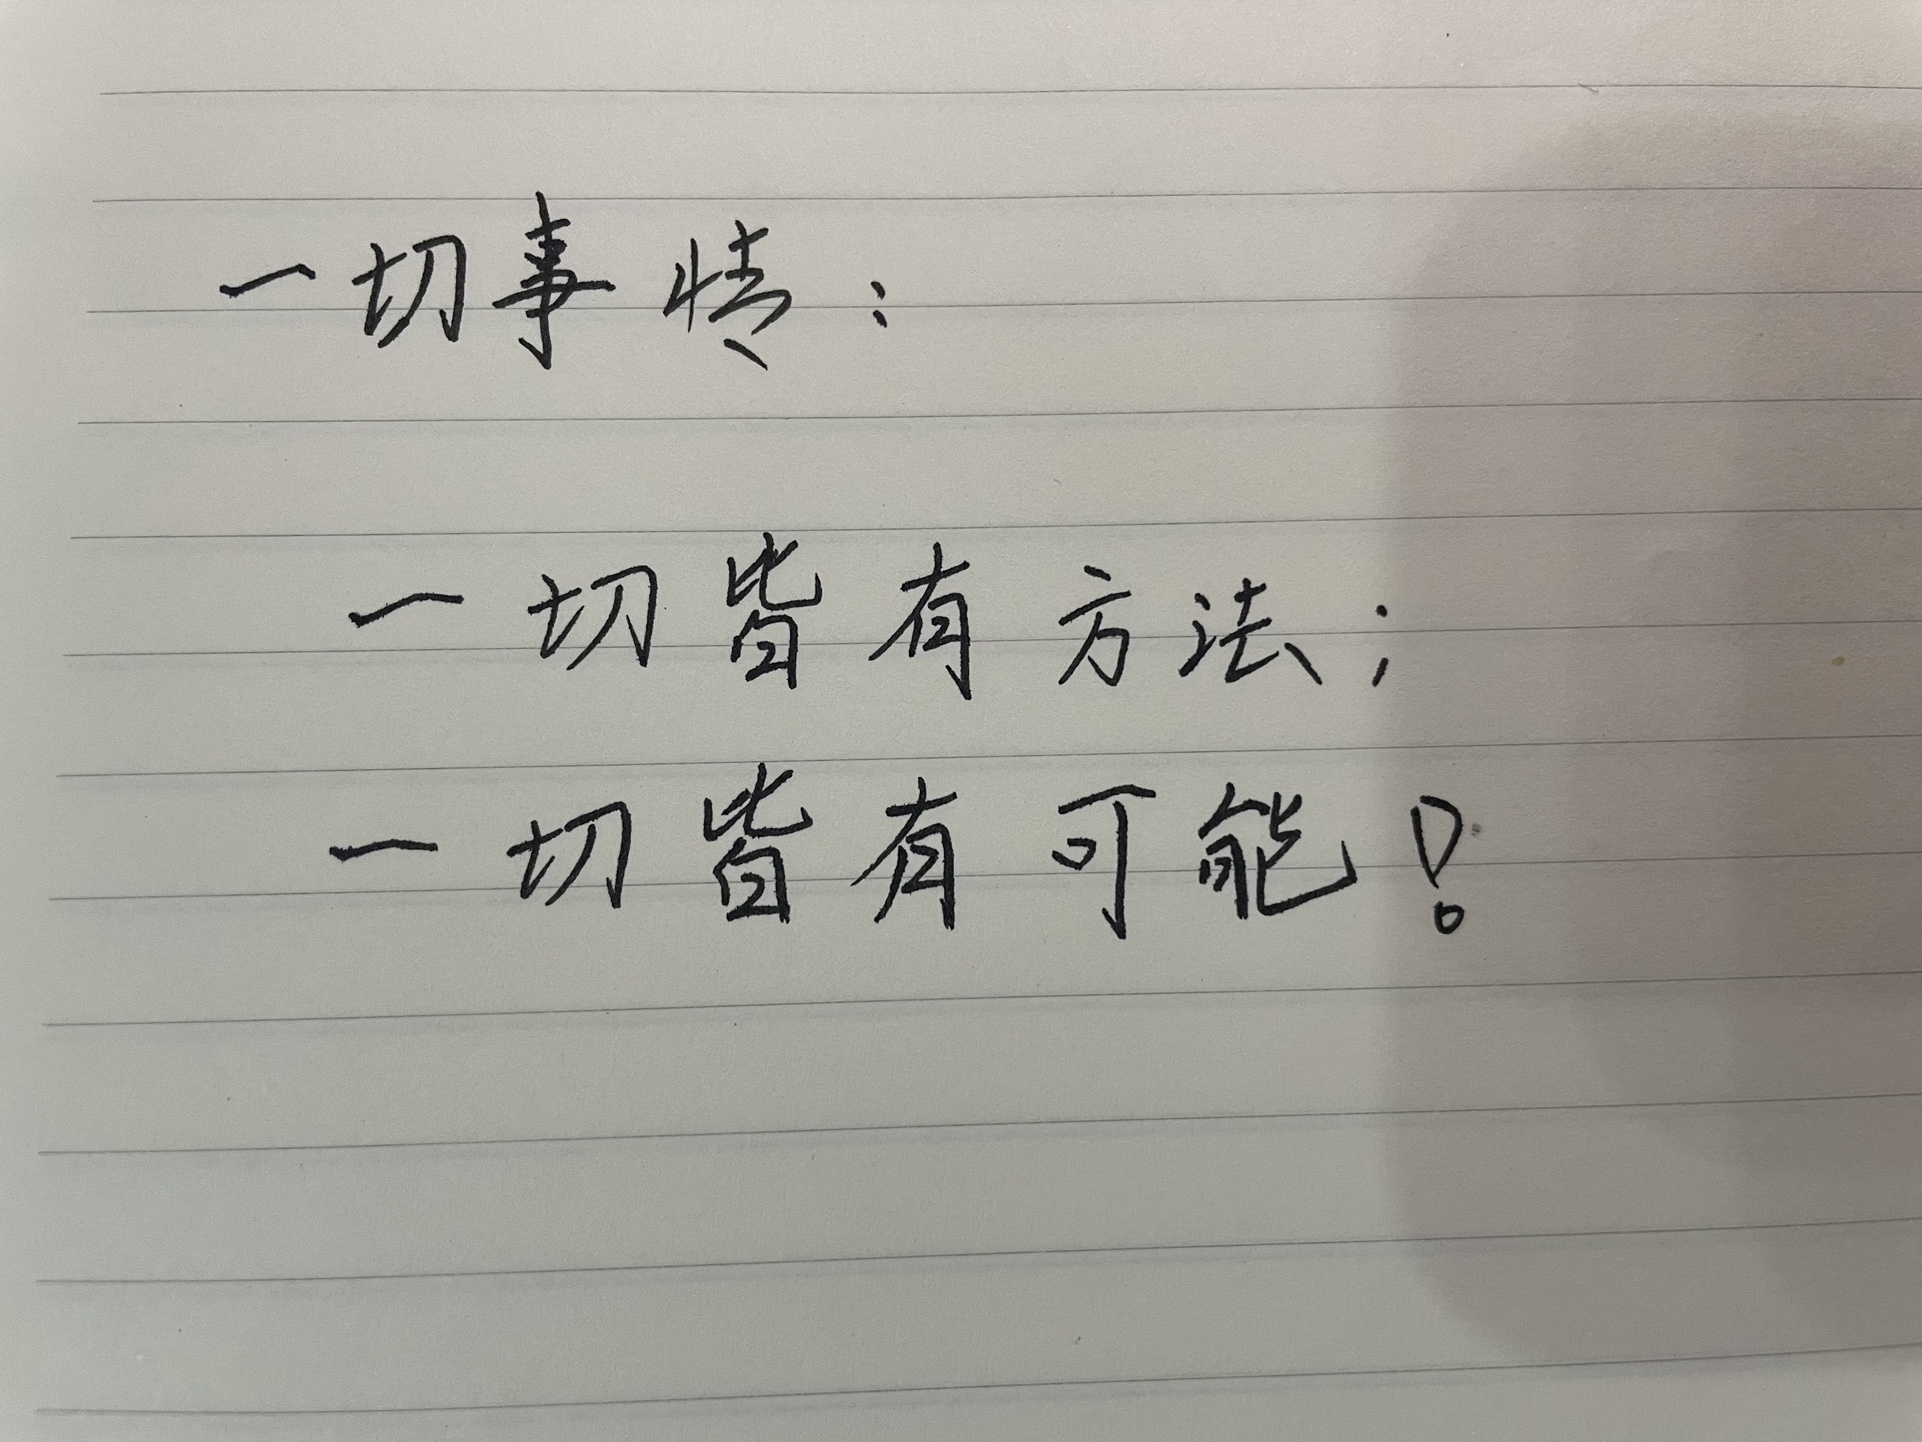 一切事情：
一切皆有方法；
一切皆有可能！